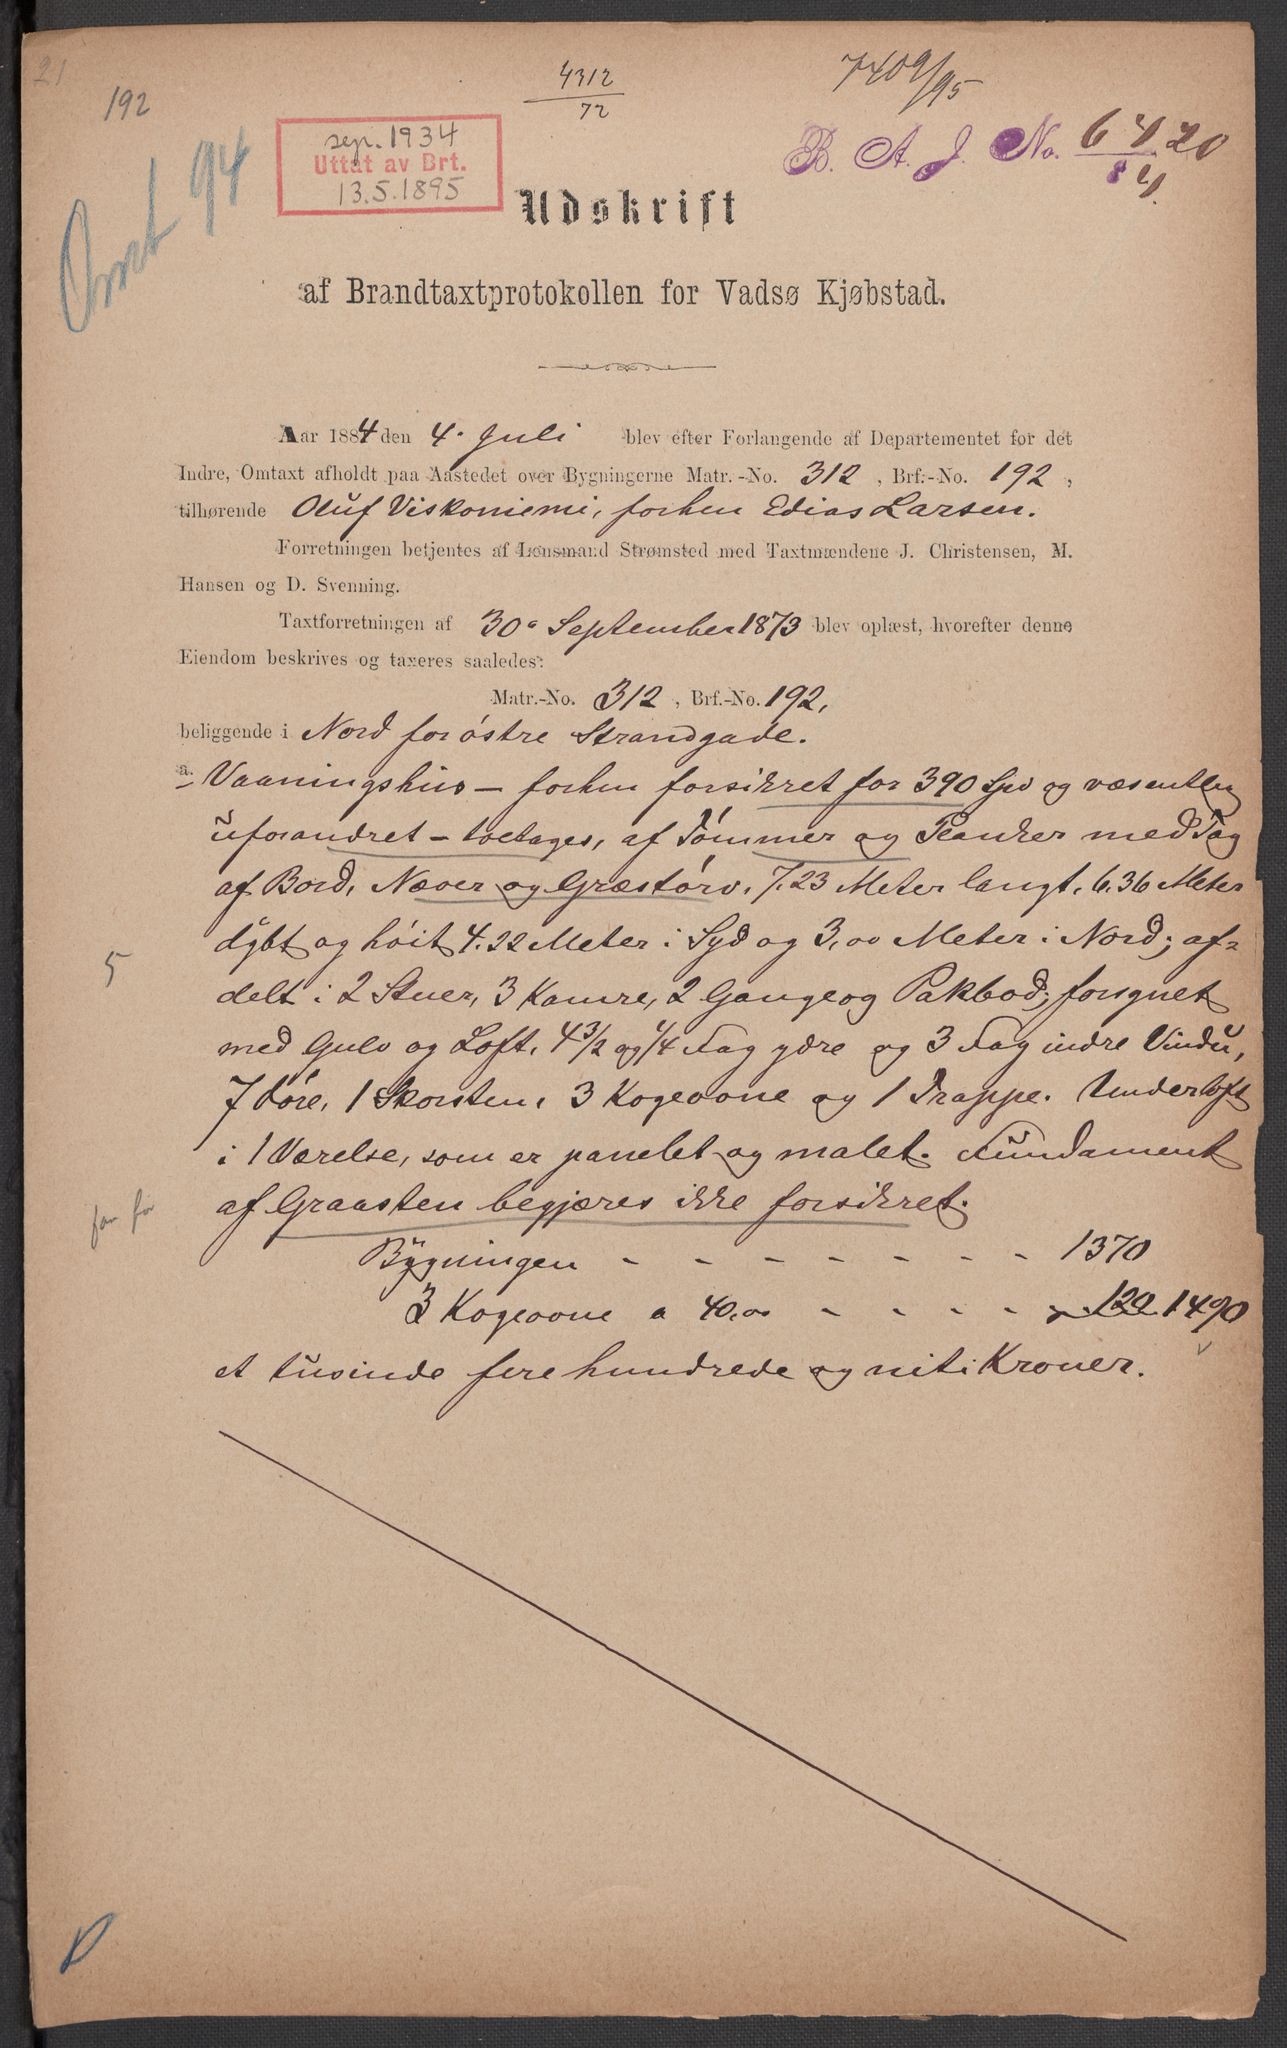 21
192
4312
72
7409/95
Omt 94
sep. 1934
Uttat av Brt.
13.5.1895
B. A. J. No. 6420
84.
Udskrift
af Brandtaxtprotokollen for Vadsø Kjøbstad.
Aar 1884 den 4. Juli blev efter Forlangende af Departementet for det
Indre, Omtaxt afholdt paa Aastedet over Bygningerne Matr.-No. 312, Brf.-No. 192,
tilhørende Oluf Viskoniemi, forhen Edias Larsen.
Forretningen betjentes af Lensmand Strømsted med Taxtmændene J. Christensen, M.
Hansen og D. Svenning.
Taxtforretningen af 30. September 1873 blev oplæst, hvorefter denne
Eiendom beskrives og taxeres saaledes:
Matr.-No. 312, Brf.-No. 192,
beliggende i Nord for østre Strandgade.
a. Vaaningshus – forhen forsikret for 390 Spd og væsentlig
uforandret – toetages, af Tømmer og Planker med Tag
af Bord, Næver og Græstørv, 7.23 Meter langt, 6.36 Meter
dybt og høit 4.22 Meter i Syd og 3,00 Meter i Nord; af-
5
delt i 2 Stuer, 3 Kamre, 2 Gange og Pakbod; forsynet
med Gulv og Loft, 4 3/2 og 1/4 Fag ydre og 3 Fag indre Vindu,
7 Døre, 1 Skorsten, 3 Kogeovne og 1 Trappe. Underloft
i 1 Værelse, som er panelet og malet. Fundament
af Graasten begjæres ikke forsikret.
Bygningen - - - - - - - - 1370
3 Kogeovne a 40,00 - - - - - 120 1490
et tusinde fire hundrede og niti Kroner.